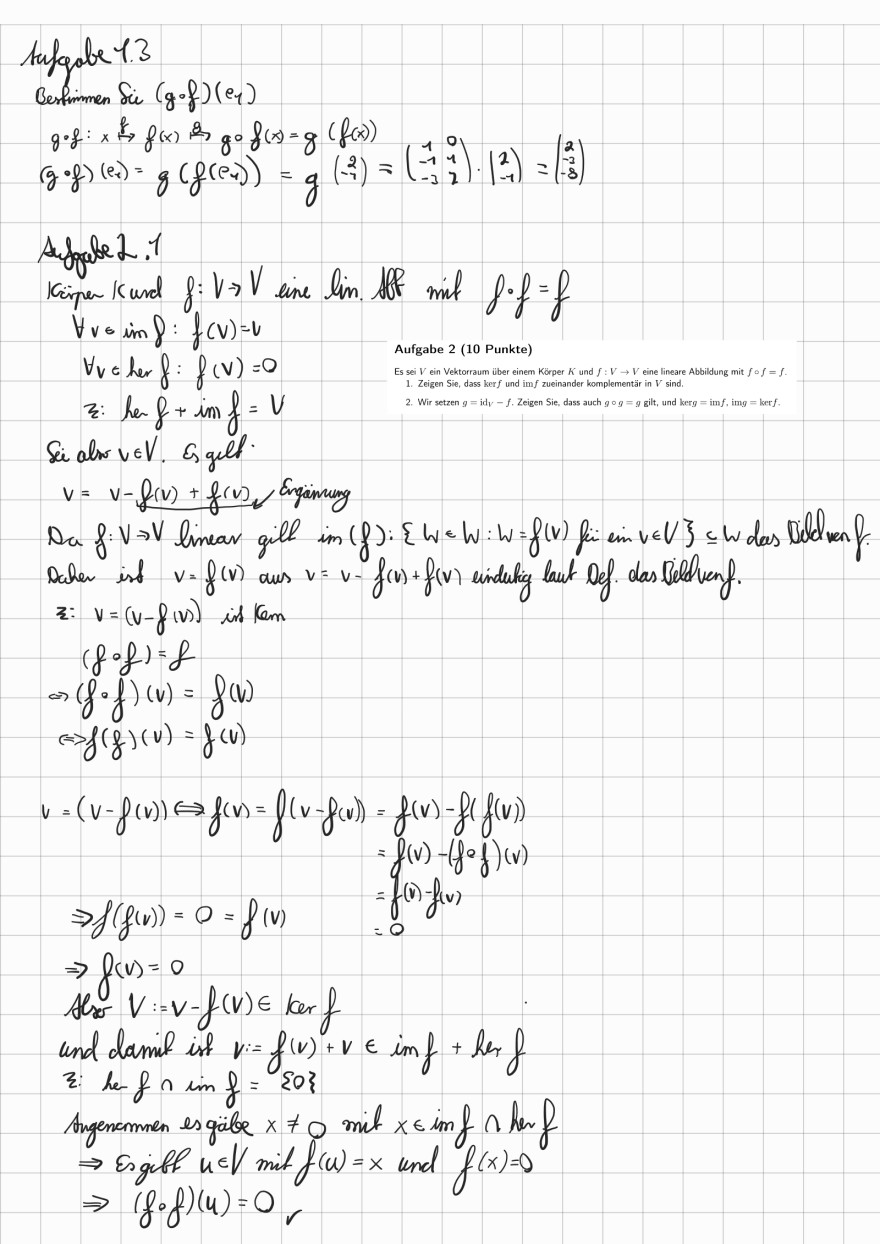 Aufgabe 1.3
Bestimmen Sie (g∘f)(e₁)
g∘f : x ↦ᶠ f(x) ↦ᵍ g∘f(x) = g (f(x))
(g∘f)(e₁) = g (f(e₁)) = g (2 -1) = (1 0 -1 1 -3 2) · (2 -1) = (2 -3 -8)
Aufgabe 2.1
Körper K und f: V → V eine lin. Abb mit f∘f = f
∀v ∈ im f : f(v) = v
∀v ∈ ker f : f(v) = 0
Aufgabe 2 (10 Punkte)
Es sei V ein Vektorraum über einem Körper K und f : V → V eine lineare Abbildung mit f ∘ f = f.
1. Zeigen Sie, dass kerf und imf zueinander komplementär in V sind.
2. Wir setzen g = id_V − f. Zeigen Sie, dass auch g ∘ g = g gilt, und kerg = imf, img = kerf.
z: ker f + im f = V
Sei also v∈V. Es gilt:
v = v - f(v) + f(v) Ergänzung
Da f: V→V linear gilt im(f): { W ∈ W : W = f(v) für ein v∈V } ⊆ W das Bild von f.
Daher ist v = f(v) aus v = v - f(v) + f(v) eindeutig laut Def. das Bild von f.
z: v = (v - f(v)) ist Kern
(f∘f) = f
⇔ (f∘f)(v) = f(v)
⇔ f(f)(v) = f(v)
v = (v - f(v)) ⇔ f(v) = f(v - f(v)) = f(v) - f(f(v))
= f(v) - (f∘f)(v)
= f(v) - f(v)
= 0
⇒ f(f(v)) = 0 = f(v)
⇒ f(v) = 0
Also V := v - f(v) ∈ ker f
und damit ist v := f(v) + v ∈ im f + ker f
z: ker f ∩ im f = {0}
Angenommen es gäbe x ≠ 0 mit x ∈ im f ∩ ker f
⇒ Es gibt u∈V mit f(u) = x und f(x) = 0
⇒ (f∘f)(u) = 0 ✓